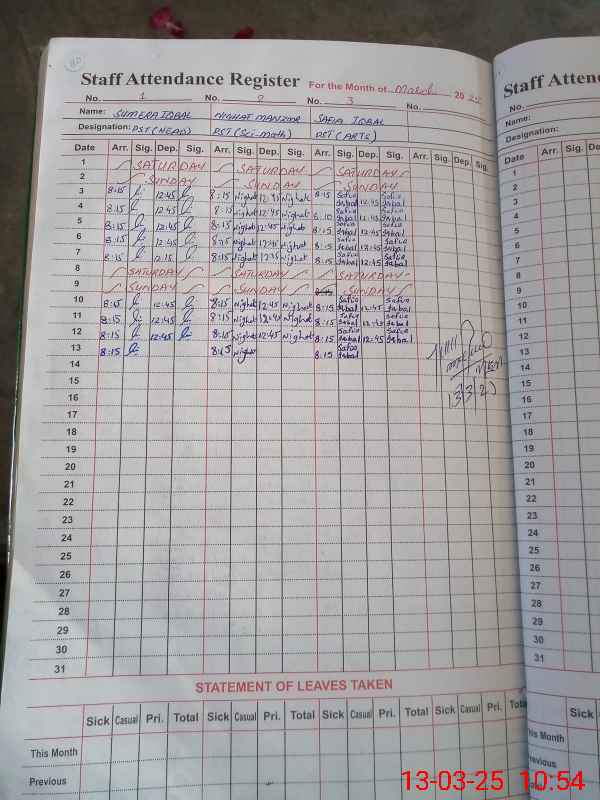 Staff Attendance Register For the Month of March 20 25
No. 1 No. 2 No. 3 No.
Name: SUMERA IQBAL NIGHAT MANZOOR SAFIA IQBAL
Designation: PST (HEAD) PST (Sci-math) PST (ARTS)
Date Arr. Sig. Dep. Sig. Arr. Sig. Dep. Sig. Arr. Sig. Dep. Sig. Arr. Sig. Dep. Sig.
1 SATURDAY SATURDAY SATURDAY
2 SUNDAY SUNDAY SUNDAY
3 8:15 12:45 8:15 Nighat 12:45 Nighat 8:15 Safia Iqbal 12:45 Safia Iqbal
4 8:15 12:45 8:15 Nighat 12:45 Nighat 8:10 Safia Iqbal 12:45 Safia Iqbal
5 8:15 12:45 8:15 Nighat 12:45 Nighat 8:15 Safia Iqbal 12:45 Safia Iqbal
6 8:15 12:45 8:15 Nighat 12:45 Nighat 8:15 Safia Iqbal 12:45 Safia Iqbal
7 8:15 12:15 8:15 Nighat 12:15 Nighat 8:15 Safia Iqbal 12:45 Safia Iqbal
8 SATURDAY SATURDAY SATURDAY
9 SUNDAY SUNDAY SUNDAY
10 8:15 12:45 8:15 Nighat 12:45 Nighat 8:15 Safia Iqbal 12:45 Safia Iqbal
11 8:15 12:45 8:15 Nighat 12:45 Nighat 8:15 Safia Iqbal 12:45 Safia Iqbal
12 8:15 12:45 8:15 Nighat 12:45 Nighat 8:15 Safia Iqbal 12:45 Safia Iqbal
13 8:15 8:15 Nighat 8:15 Safia Iqbal
14
15
16
17
18
19
20
21
22
23
24
25
26
27
28
29
30
31
STATEMENT OF LEAVES TAKEN
Sick Casual Pri. Total Sick Casual Pri. Total Sick Casual Pri. Total Sick Casual Pri. Total
This Month
Previous
Staff Atten
No.
Name:
Designation:
Date Arr. Sig.
1
2
3
4
5
6
7
8
9
10
11
12
13
14
15
16
17
18
19
20
21
22
23
24
25
26
27
28
29
30
31
Sick
This Month
Previous
13-03-25 10:54